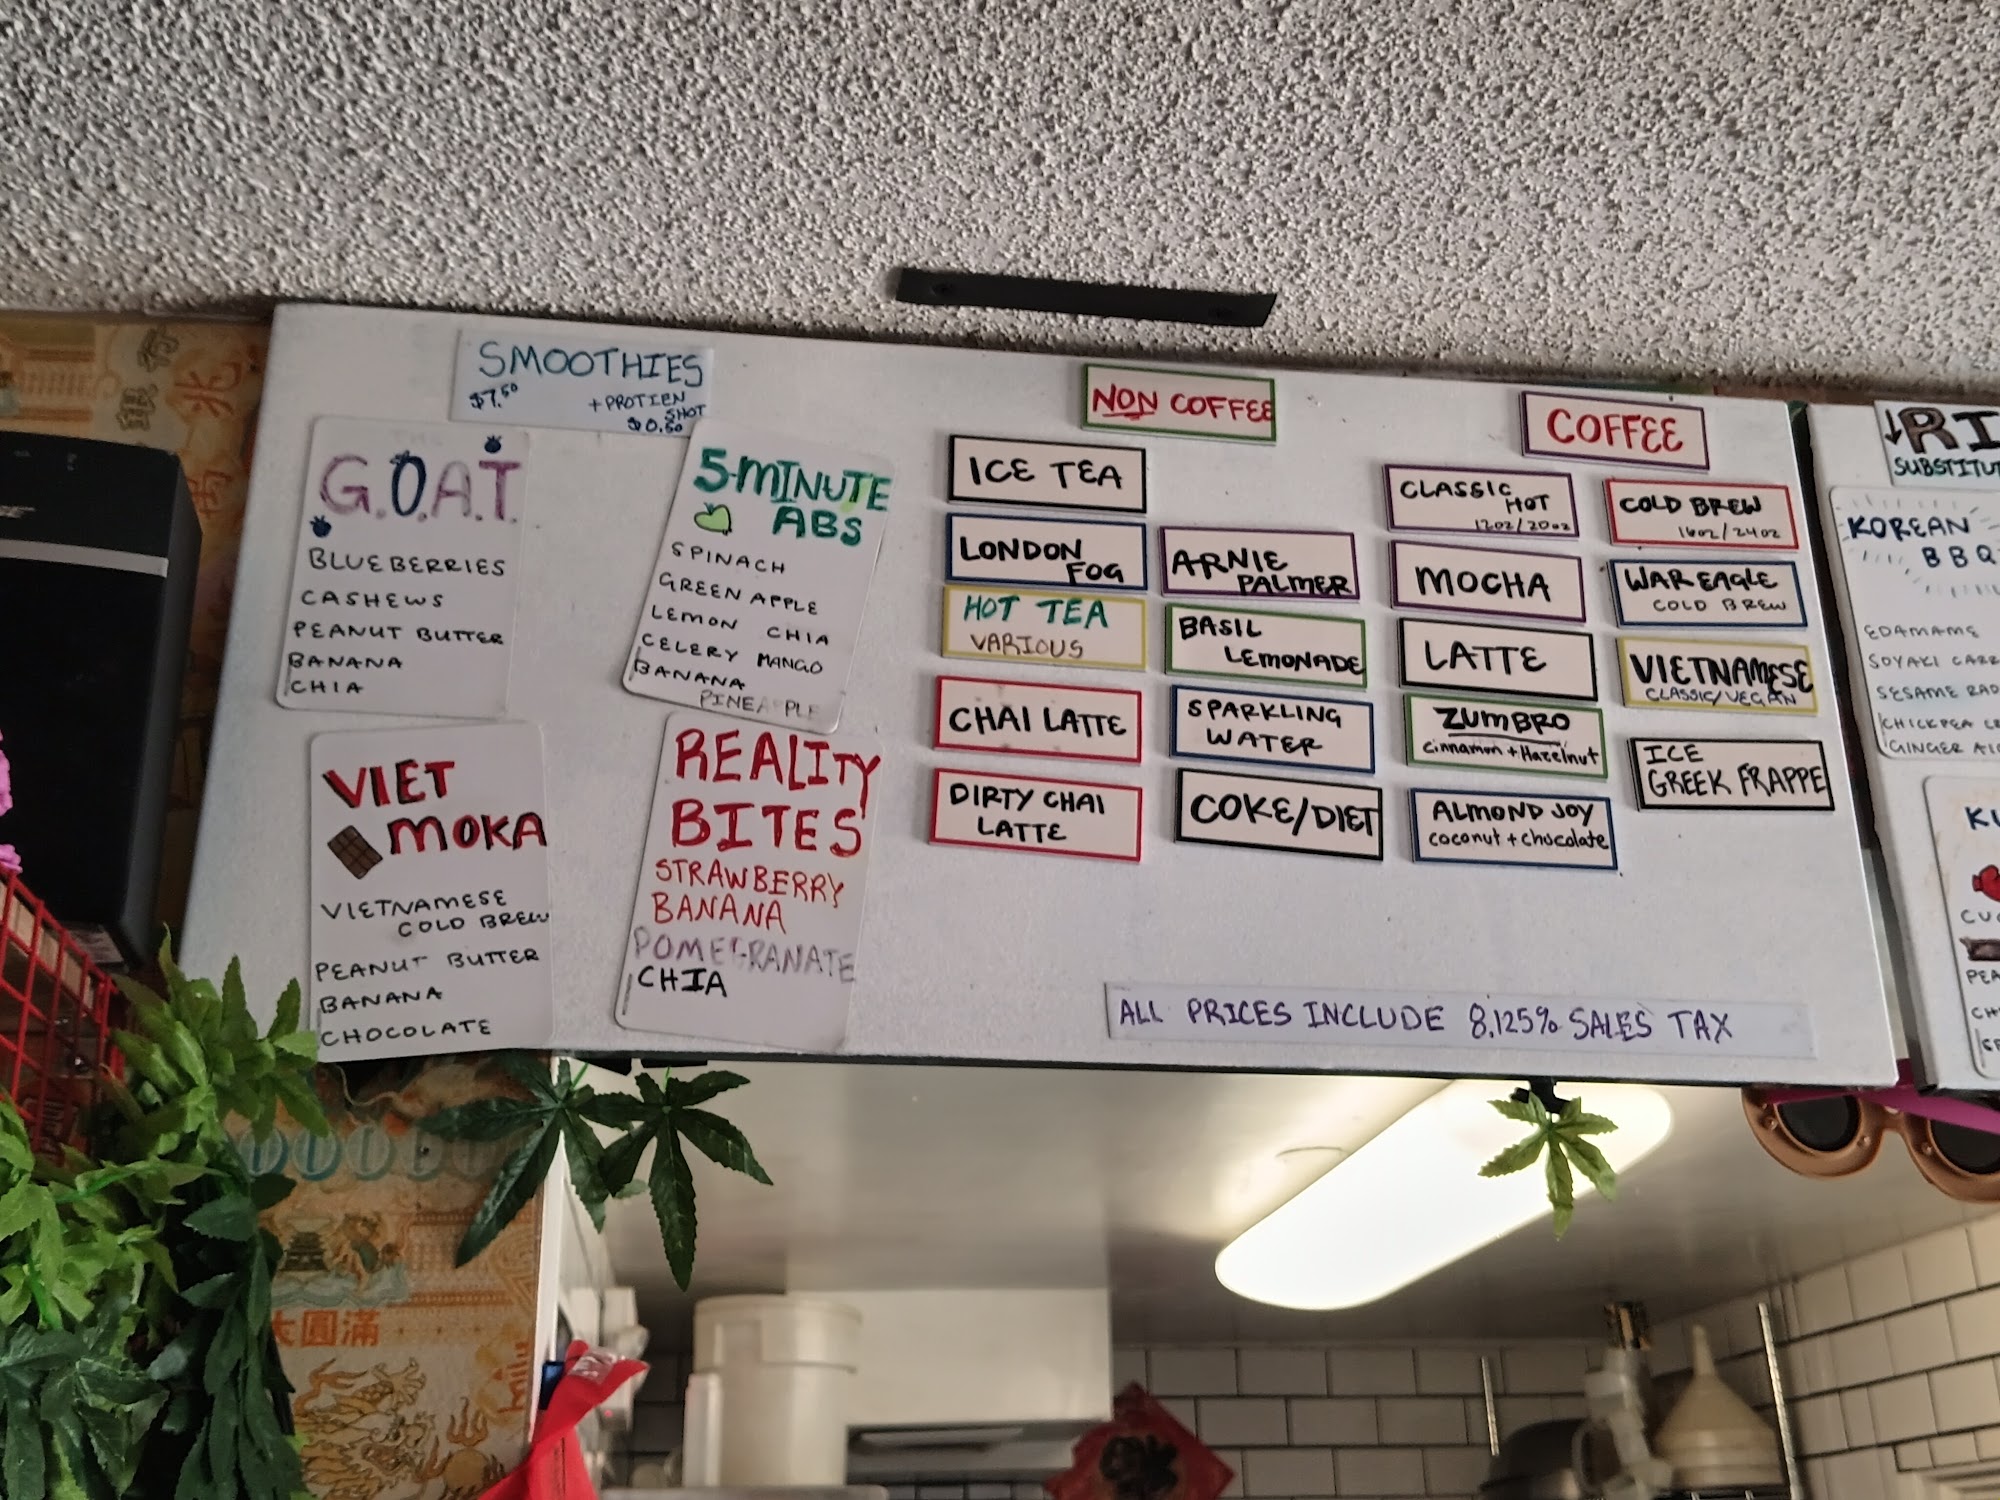 SMOOTHIES
$7.50
+ PROTIEN
SHOT
$0.50
G.O.A.T.
BLUEBERRIES
CASHEWS
PEANUT BUTTER
BANANA
CHIA
5-MINUTE
ABS
SPINACH
GREEN APPLE
LEMON CHIA
CELERY MANGO
BANANA
PINEAPPLE
VIET
MOKA
VIETNAMESE
COLD BREW
PEANUT BUTTER
BANANA
CHOCOLATE
REALITY
BITES
STRAWBERRY
BANANA
POMEGRANATE
CHIA
NON COFFEE
ICE TEA
LONDON
FOG
HOT TEA
VARIOUS
CHAI LATTE
DIRTY CHAI
LATTE
ARNIE
PALMER
BASIL
LEMONADE
SPARKLING
WATER
COKE/DIET
COFFEE
CLASSIC
HOT
12oz/20oz
MOCHA
LATTE
ZUMBRO
cinnamon + Hazelnut
ALMOND JOY
coconut + chocolate
COLD BREW
16oz/24oz
WAR EAGLE
COLD BREW
VIETNAMESE
CLASSIC/VEGAN
ICE
GREEK FRAPPE
ALL PRICES INCLUDE 8.125% SALES TAX
KOREAN
BBQ
EDAMAME
SOYAKI
SESAME
CHICKPEA
GINGER
大圓滿